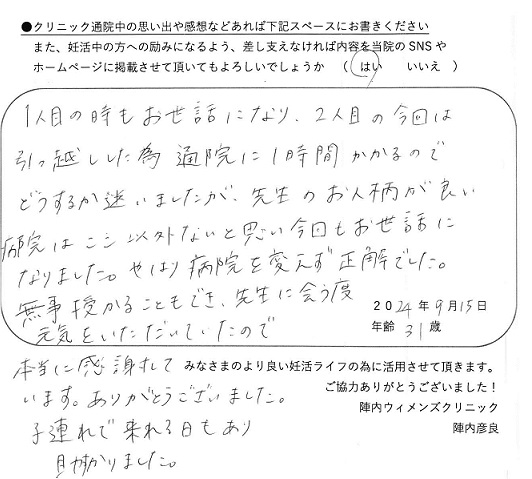 ●クリニック通院中の思い出や感想などあれば下記スペースにお書きください
また、妊活中の方への励みになるよう、差し支えなければ内容を当院のSNSや
ホームページに掲載させて頂いてもよろしいでしょうか （ はい いいえ ）
1人目の時もお世話になり、2人目の今回は
引っ越しした為 通院に1時間かかるので
どうするか迷いましたが、先生のお人柄が良い
病院はここ以外ないと思い今回もお世話に
なりました。やはり病院を変えず正解でした。
無事授かることもでき、先生に会う度
元気をいただいていたので
2024年9月15日
年齢 31歳
本当に感謝して
います。ありがとうございました。
子連れで来れる日もあり
助かりました。
みなさまのより良い妊活ライフの為に活用させて頂きます。
ご協力ありがとうございました！
陣内ウィメンズクリニック
陣内彦良